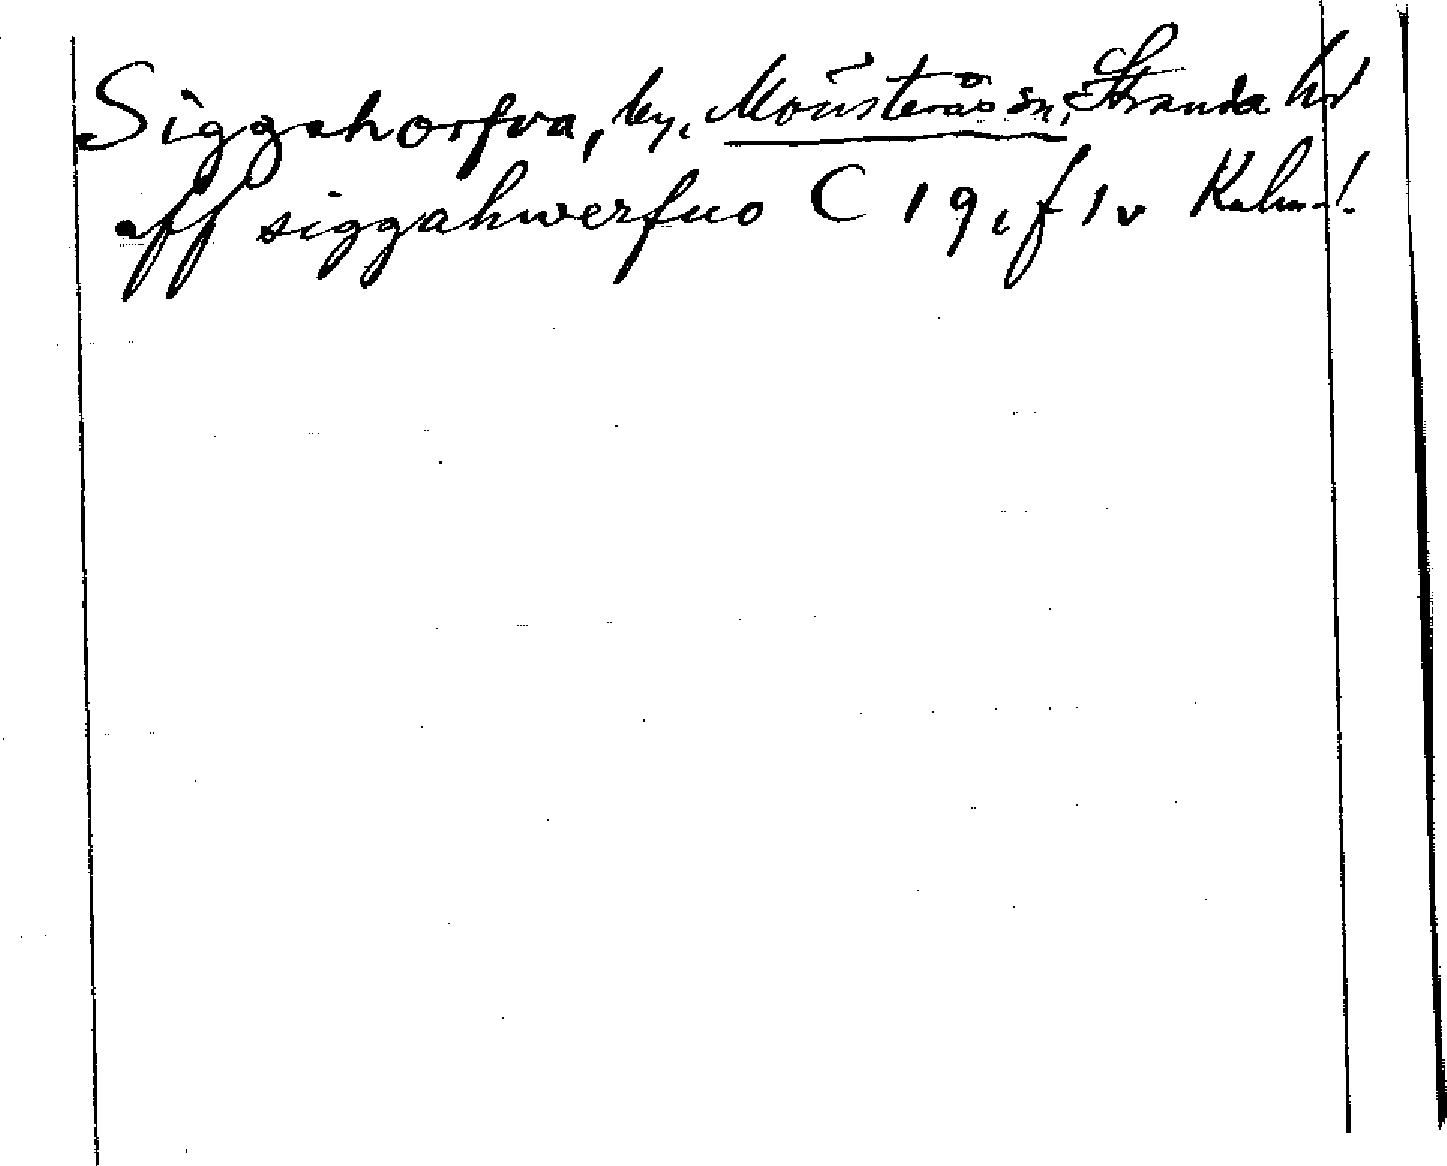 Siggahorfva, by, Mönsterås sn, Stranda hd
aff siggahwerfuo C 19, f 1 v Kalm. l.